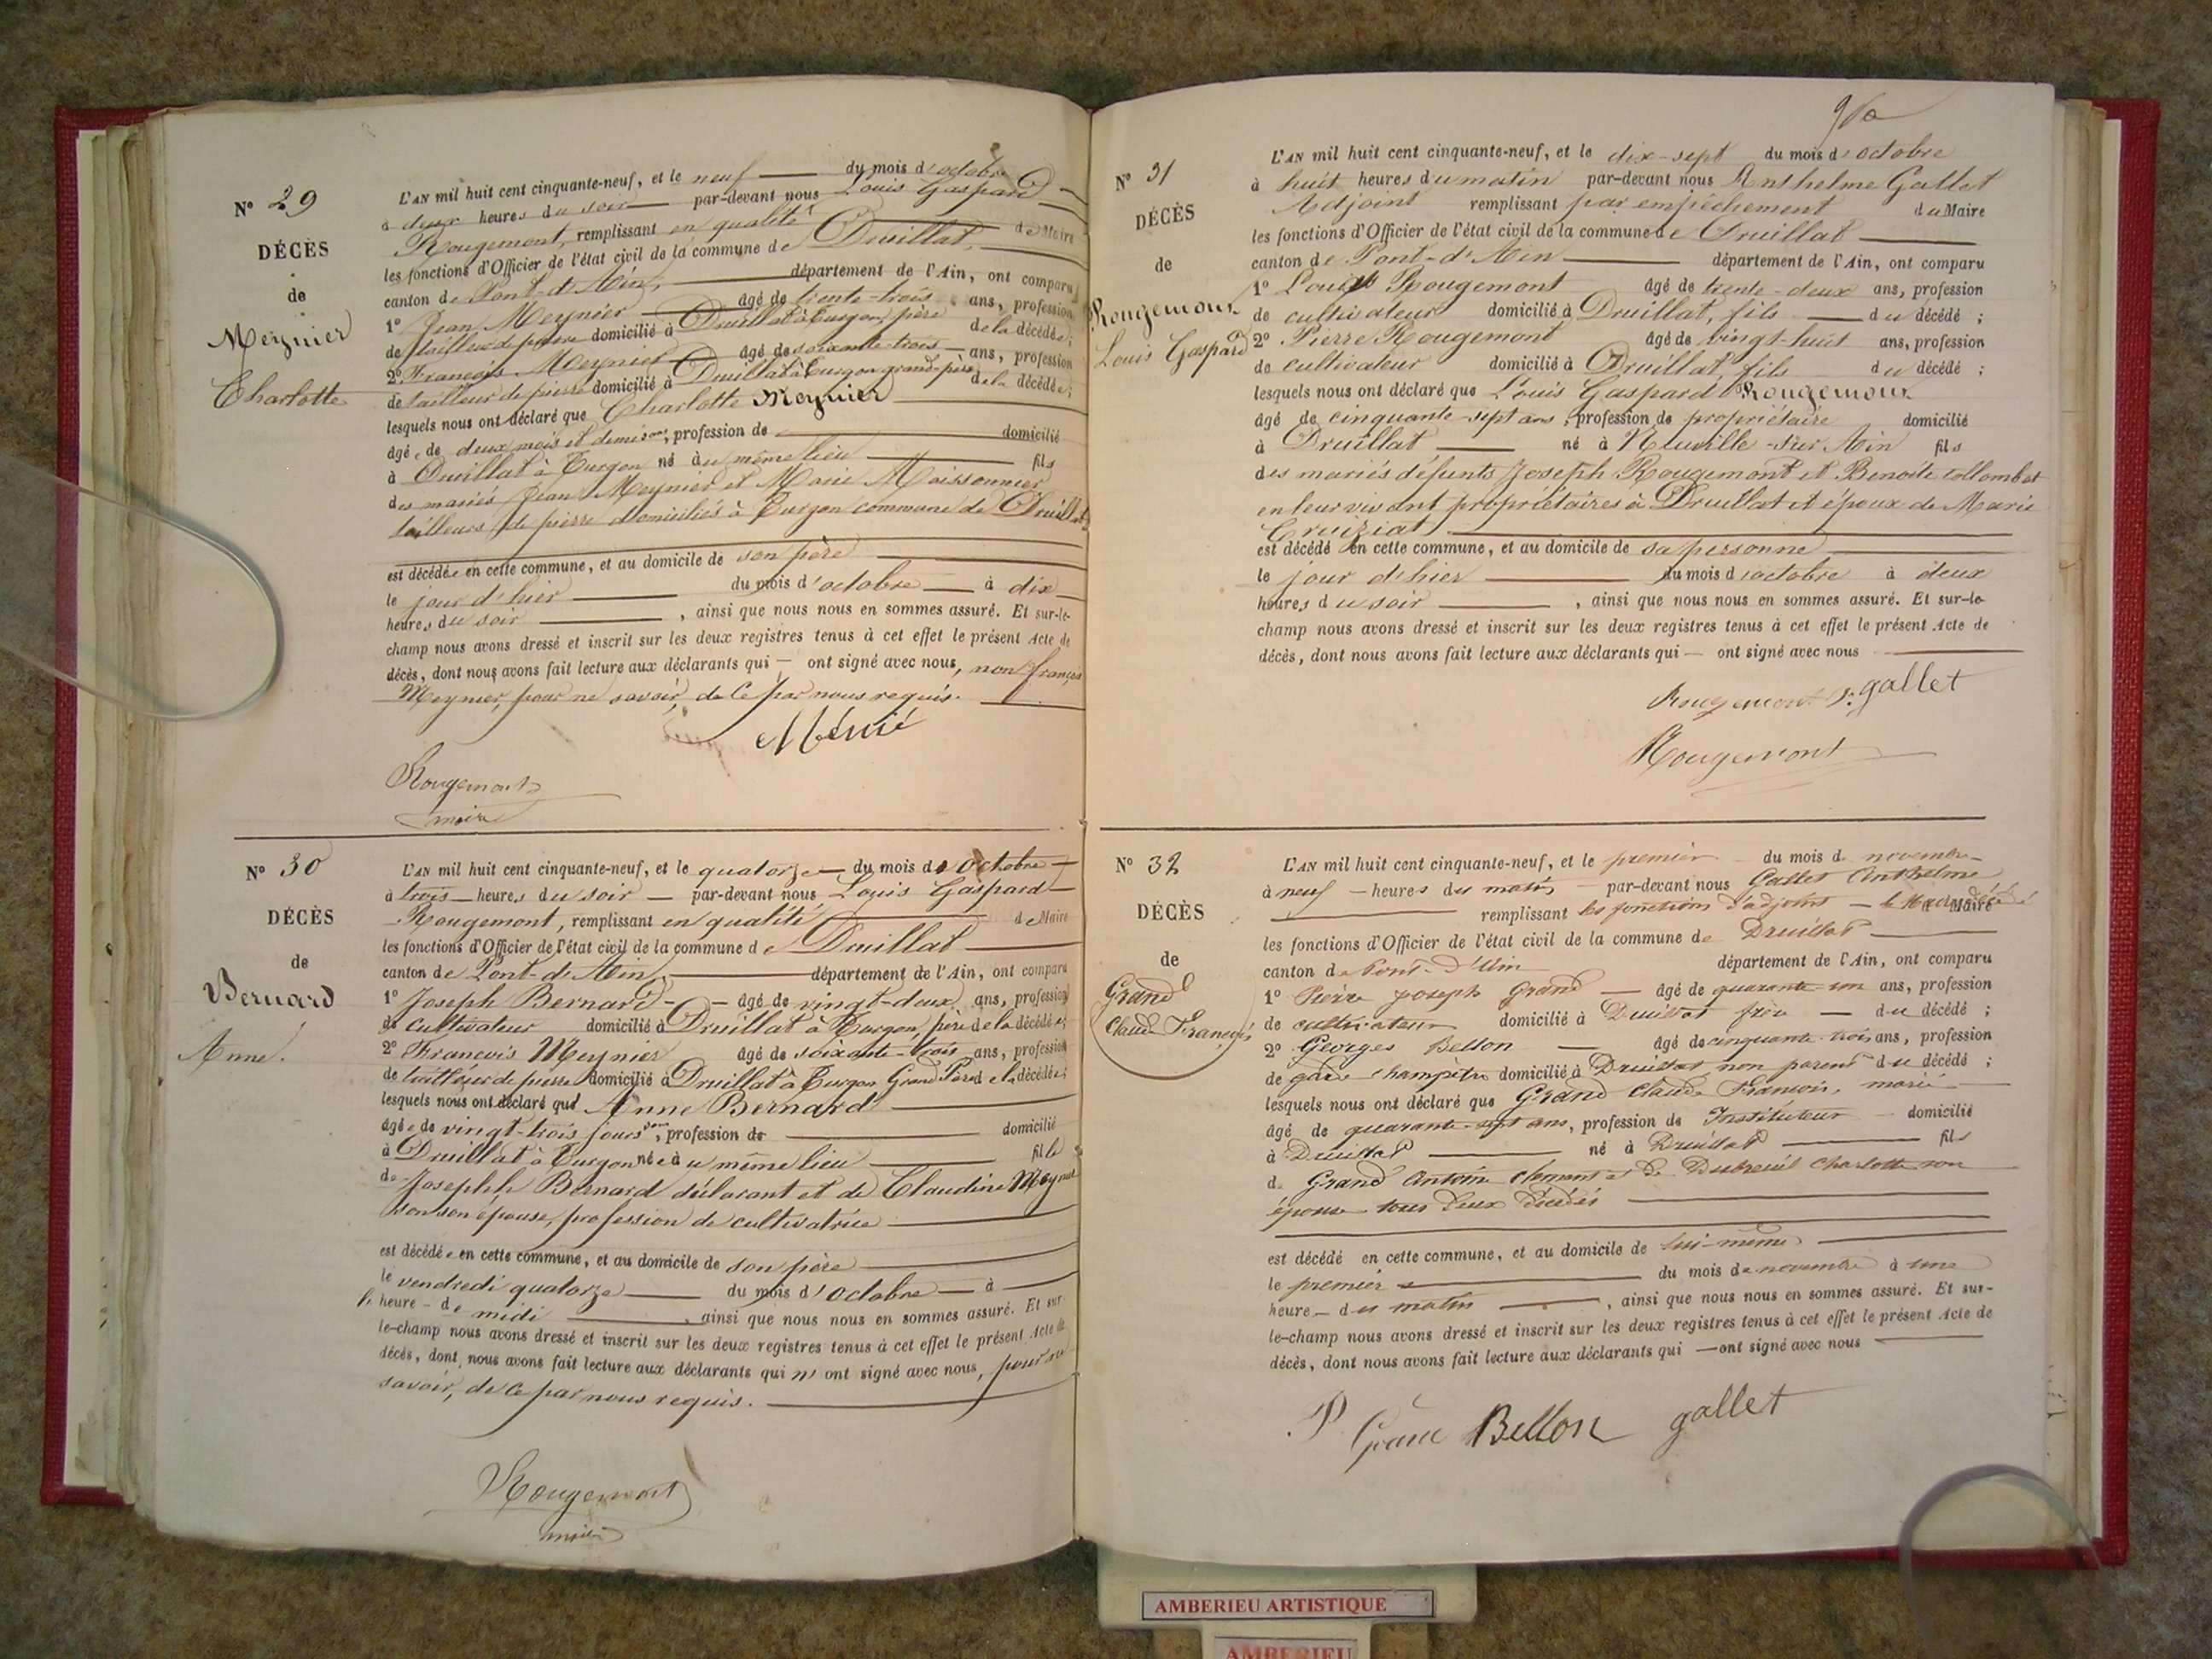 N° 29
DÉCÈS
de
Meynier
Charlotte
L'AN mil huit cent cinquante-neuf, et le neuf du mois d'octobre
à deux heures du soir par-devant nous Louis Gaspard
Rougemont, remplissant en qualité de Maire
les fonctions d'Officier de l'état civil de la commune de Druillat,
canton de Pont-d'Ain, département de l'Ain, ont comparu
1° Jean Meynier âgé de trente-trois ans, profession
de tailleur de pierre domicilié à Druillat à Turgon, père de la décédée;
2° François Meynier âgé de soixante-trois ans, profession
de tailleur de pierre domicilié à Druillat à Turgon grand-père de la décédée;
lesquels nous ont déclaré que Charlotte Meynier
âgée de deux mois et demi, profession de domicilié
à Druillat à Turgon né au même lieu fils
des mariés Jean Meynier et Marie Moissonnier
tailleurs de pierre domiciliés à Turgon commune de Druillat
est décédée en cette commune, et au domicile de son père
le jour d'hier du mois d'octobre à dix
heures du soir, ainsi que nous nous en sommes assuré. Et sur-le-
champ nous avons dressé et inscrit sur les deux registres tenus à cet effet le présent Acte de
décès, dont nous avons fait lecture aux déclarants qui — ont signé avec nous, non françois
Meynier, pour ne savoir, de ce par nous requis.
Rougemont
maire
N° 30
DÉCÈS
de
Bernard
Anne.
L'AN mil huit cent cinquante-neuf, et le quatorze du mois de Octobre
à trois heures du soir par-devant nous Louis Gaspard
Rougemont, remplissant en qualité de Maire
les fonctions d'Officier de l'état civil de la commune de Druillat
canton de Pont-d'Ain, département de l'Ain, ont comparu
1° Joseph Bernard âgé de vingt-deux ans, profession
de cultivateur domicilié à Druillat à Turgon, père de la décédée;
2° François Meynier âgé de soixante-trois ans, profession
de tailleur de pierre domicilié à Druillat à Turgon Grand Père de la décédée;
lesquels nous ont déclaré que Anne Bernard
âgée de vingt-trois jours, profession de domicilié
à Druillat à Turgon née au même lieu fille
de Josephh Bernard déclarant et de Claudine Meynier
son son épouse, profession de cultivatrice
est décédée en cette commune, et au domicile de son père
le vendredi quatorze du mois d'Octobre à
l' heure de midi, ainsi que nous nous en sommes assuré. Et sur-
le-champ nous avons dressé et inscrit sur les deux registres tenus à cet effet le présent Acte de
décès, dont nous avons fait lecture aux déclarants qui n' ont signé avec nous, pour ne
savoir, de ce par nous requis.
Rougemont
maire
N° 31
DÉCÈS
de
Rougemont
Louis Gaspard
L'AN mil huit cent cinquante-neuf, et le dix-sept du mois d'octobre
à huit heures du matin par-devant nous Anshelme Gallet
Adjoint remplissant par empêchement du Maire
les fonctions d'Officier de l'état civil de la commune de Druillat
canton de Pont-d'Ain département de l'Ain, ont comparu
1° Louis Rougemont âgé de trente-deux ans, profession
de cultivateur domicilié à Druillat, fils du décédé;
2° Pierre Rougemont âgé de vingt-huit ans, profession
de cultivateur domicilié à Druillat, fils du décédé;
lesquels nous ont déclaré que Louis Gaspard Rougemont
âgé de cinquante-sept ans, profession de propriétaire domicilié
à Druillat né à Neuville-sur-Ain fils
des mariés défunts Joseph Rougemont et Benoite Collombet
en leur vivant propriétaires à Druillat et époux de Marie
Cruiziat
est décédé en cette commune, et au domicile de sa personne
le jour d'hier du mois d'octobre à deux
heures du soir, ainsi que nous nous en sommes assuré. Et sur-le-
champ nous avons dressé et inscrit sur les deux registres tenus à cet effet le présent Acte de
décès, dont nous avons fait lecture aux déclarants qui — ont signé avec nous
Rougemont gallet
Rougemont
N° 32
DÉCÈS
de
Grand
Claude François
L'AN mil huit cent cinquante-neuf, et le premier du mois de novembre
à neuf heures du matin par-devant nous Gallet Anthelme
remplissant les fonctions d'adjoint le Maire décédé Maire
les fonctions d'Officier de l'état civil de la commune de Druillat
canton de Pont-d'Ain département de l'Ain, ont comparu
1° Pierre Joseph Grand âgé de quarante-un ans, profession
de cultivateur domicilié à Druillat frère du décédé;
2° Georges Bellon âgé de cinquante-trois ans, profession
de garde champêtre domicilié à Druillat non parent du décédé;
lesquels nous ont déclaré que Grand Claude François, marié
âgé de quarante-sept ans, profession de Instituteur domicilié
à Druillat né à Druillat fils
de Grand Antoine Clément et de Dubreuil Charlotte son
épouse tous deux décédés
est décédé en cette commune, et au domicile de lui-même
le premier du mois de novembre à une
heure du matin, ainsi que nous nous en sommes assuré. Et sur-
le-champ nous avons dressé et inscrit sur les deux registres tenus à cet effet le présent Acte de
décès, dont nous avons fait lecture aux déclarants qui — ont signé avec nous
P Grand Bellon gallet
AMBERIEU ARTISTIQUE
AMBERIEU